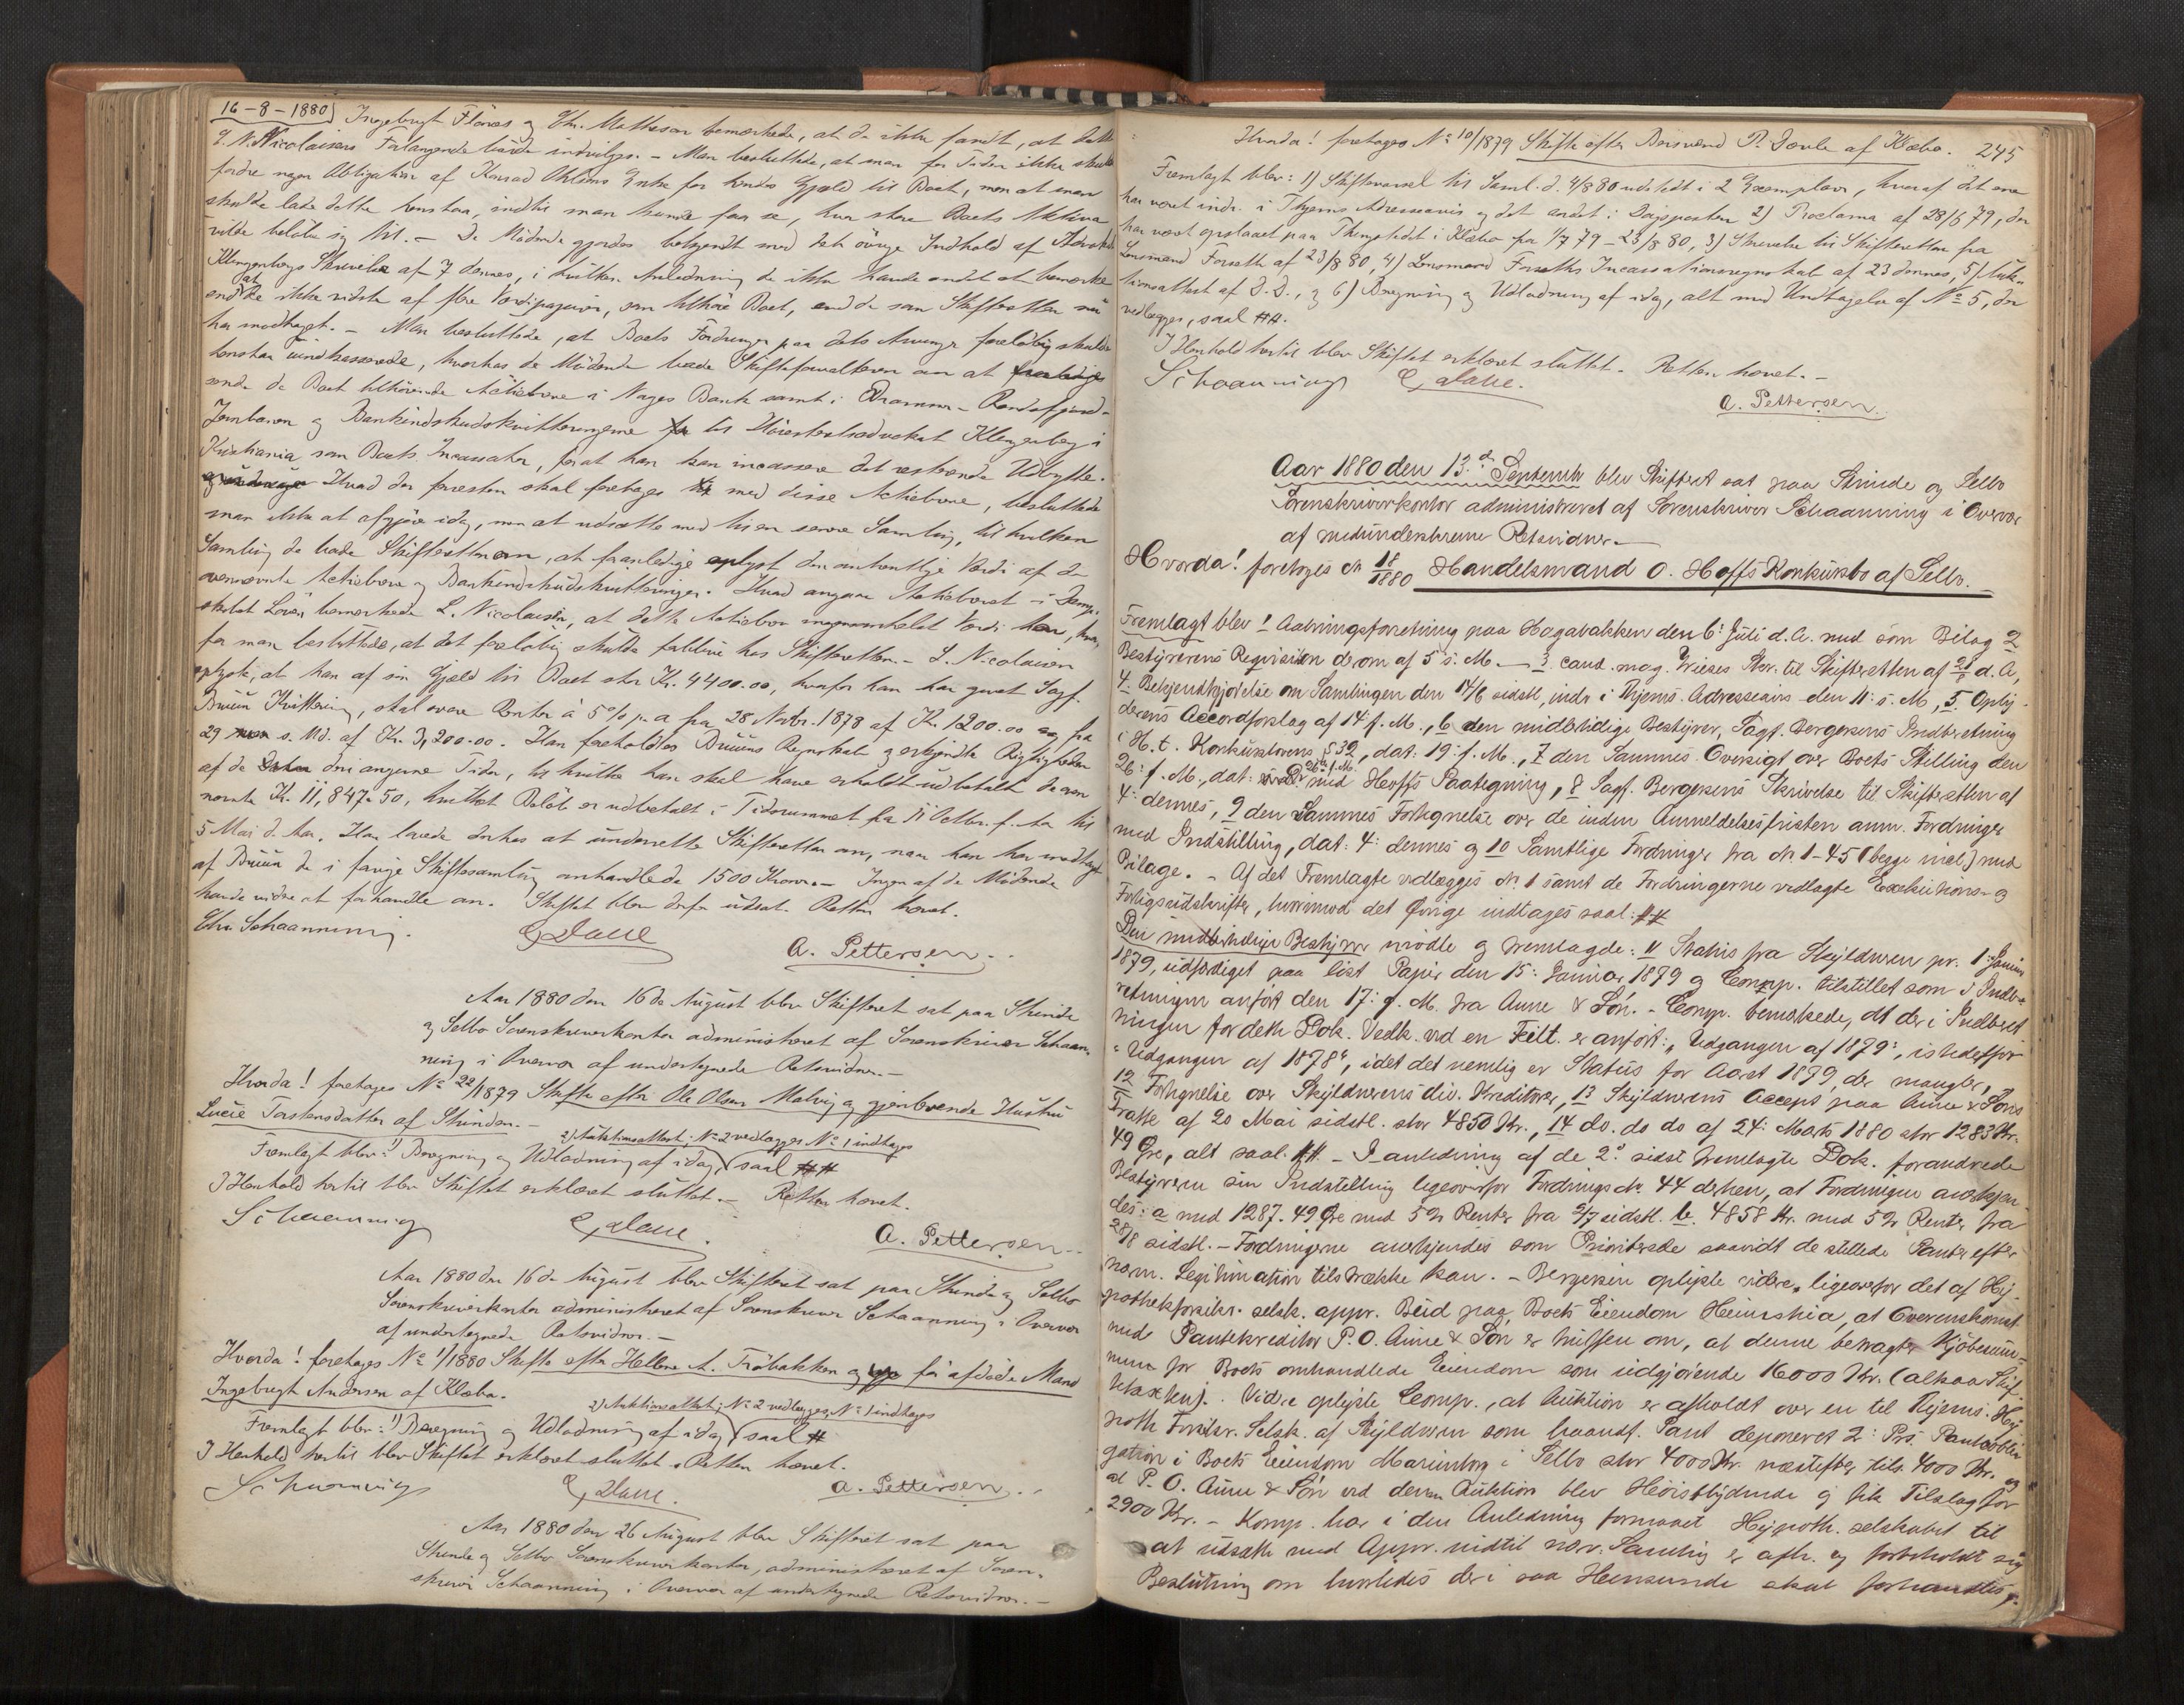 16-8-1880) Ingebrigt Flönes og Chr. Mathesen bemærkede, at de ikke fandt, at dette
L. N. Nicolaisens Forlangende burde indvilges. - Man besluttede, at man for Tiden ikke skulde
fordre nogen Obligation af Konrad Ohlsens Enke for hendes Gjæld til Boet, men at man
skulde lade dette henstaa, indtil man kunde faa se, hvor store Boets Aktiva
vilde beløbe sig til. - De Mødende gjordes bekjendt med det övrige Indhold af Advokat
Klingenbergs Skrivelse af 7 dennes, i hvilken Anledning de ikke havde andet at bemærke
end at de ikke vidste af flere Værdipapirer, som tilhöre Boet, end de som Skifteretten nu
har modtaget. - Man besluttede, at Boets Fordringer paa dets Arvinger foreløbig skulde
henstaa uindkasserede, hvorhos de Mödende bade Skifteforvalteren om at
sende de Boet tilhörende Actiebreve i Norges Bank samt i Drammen-Randsfjord-
Jernbanen og Bankindskudskvitteringerne til Höiesteretsadvokat Klingenberg i
Kristiania som Boets Incassator, forat han kan incassere det resterende Udbytte.
Hvad der foresten skal foretages med disse Actiebreve, besluttede
man ikke at afgjöre idag, men at udsætte med til en senere Samling, til hvilken
Samling de bade Skifteretten om, at foranledige oplyst den omtrentlige Værdi af de
ovennævnte Actiebreve og Bankindskudskvitteringer. Hvad angaar Actiebrevet i Damp-
skibet Loven bemærkede L. Nicolaisen, at dette Actiebrev Værdi har, hvor-
for man besluttede, at det foreløbig skulde forblive hos Skifteretten. - L. Nicolaisen
oplyste, at han af sin Gjæld til Boet stor Kr. 4400.00, hvorfor han har givet Sagf.
Bruun Kvittering, skal svare Renter à 5% p. a fra 28 Novbr. 1878 af Kr. 1200.00 og fra
29 s. Md. af Kr. 3,200.00. Han foreholdtes Bruuns Regnskab og erkjendte Rigtigheden
af de deri angivne Tider, til hvilke han skal have erholdt udbetalt de oven
nævnte Kr. 11,847.50, hvilket Beløb er udbetalt i Tidsrummet fra 11 Octbr. f. Aar til
5 Mai d. Aar. Han lovede derhos at underrette Skifteretten om, naar han har modtaget
af Bruun de i forrige Skiftesamling omhandlede 1500 Kroner. - Ingen af de Mødende
havde videre at forhandle om. Skiftet blev derfor udsat. Retten hævet.
Chr. Schaanning. E Daue A. Pettersen.
Aar 1880 den 16de August blev Skifteret sat paa Strinde
og Selbo Sorenskriverkontor administreret af Sorenskriver Schaan-
ning i Overvær af undertegnede Retsvidner. -
Hvorda! foretages No 22/1879 Skifte efter Ole Olsen Malvig og gjenlevende Hustru
Lucie Torstensdatter af Strinden. -
2) Auktionsattest; No 2 vedlægges No 1 indtages
Fremlagt blev: 1) Beregning og Udlodning af idag, saal ##
I Henhold hertil blev Skiftet erklæret sluttet. - Retten hævet.
Schaanning E Daue. A. Pettersen.
Aar 1880 den 16de August blev Skifteret sat paa Strinde og Selbo
Sorenskriverkontor administreret af Sorenskriver Schaanning i Overvær
af undertegnede Retsvidner. -
Hvorda! foretages No 1/1880 Skifte efter Hellene A. Tröbakken og för afdöde Mand
Ingebrigt Andersen af Klæbu.
2) Auktionsattest; No 2 vedlægges, No 1 indtages
Fremlagt blev: 1) Beregning og Udlodning af idag, saal #
I Henhold hertil blev Skiftet erklæret sluttet. Retten hævet.
Schaanning E Daue. A. Pettersen.
Aar 1880 den 26 August blev Skifteret sat paa
Strinde og Selbo Sorenskriverkontor, administreret af Soren-
skriver Schaanning i Overvær af undertegnede Retsvidner. -
Hvorda! foretages No 10/1879 Skifte efter P. af Klæbu. 245
Fremlagt blev: 1) Skiftevarsel til Saml. d. 4/8 80 udstedt i 2 Exemplarer, hvoraf det ene
har været indr. i Thjems Adresseavis og det andet i Dagsposten 2) Proclama af 28/6 79, der
har været opslaaet paa Thingstedet i Klæbu fra 1/7 79 - 23/8 80, 3) Skrivelse til Skifteretten fra
Lensmand Forseth af 23/8 80, 4) Lensmand Forseths Incassationsregnskab af 23 dennes, 5) Auk-
tionsattest af D. D., og 6) Beregning og Udlodning af idag, alt med Undtagelse af No 5, der
vedlægges, saal ##.
I Henhold hertil blev Skiftet erklæret sluttet. Retten hævet. -
Schaanning E Daue. A. Pettersen.
Aar 1880 den 13.de September blev Skifteret sat paa Strinde og Selbo
Sorenskriverkontor administreret af Sorenskriver Schaanning i Overvær
af medunderskrevne Retsvidner. -
Hvorda! foretoges No 18/1880 Handelsmand O. Hoffs Konkursbo af Selbo.
Fremlagt blev 1 Aabningsforretning paa Hagabakken den 6: Juli d. A. med som Bilag 2
Bestyrerens Reqvisition derom af 5 s. M. - 3. cand. mag. Wieses Skr. til Skifteretten af d. A,
4 Bekjendtgjørelse om Samlingen den 14/8 sidstl, indr i Thjems Adresseavis den 11: s. M, 5. Opby
derens Accordforslag af 14 f. M., 6 den midlertidige Bestyrer, Sagf. Bergersens Indberetning
i H. t. Konkurslovens § 39, dat. 19: f. M., 7 den Sammes Oversigt over Boets Stilling den
26: f. M., dat: 26 f. M. med Hoffs Paategning, 8 Sagf. Bergersens Skrivelse til Skifteretten af
4: dennes, 9 den Sammes Fortegnelse over de inden Anmeldelsesfristen anm. Fordringer
med Indstilling, dat: 4: dennes og 10 Samtlige Fordringer fra No 1-45 (begge incl) med
Bilage. - Af det Fremlagte vedlægges No 1 samt de Fordringerne vedlagte Exekutions- og
Forligsudskrifter, hvorimod det Øvrige indtages saal: ##
Den midlertidige Bestyrer mødte og fremlagde: 11 Status fra Skyldneren pr. 1 Januar
1879, udfærdiget paa löst Papir den 15: Januar 1879 og Comp. tilstillet som i Indbe-
retningen anført den 17: f. M. fra Aune & Søn. - Comp. bemærkede, at der i Indberet
ningen for dette Dok. Vedk. ved en Feilt. er anført: "Udgangen af 1879", istedetfor
"Udgangen af 1878", idet det nemlig er Status for Aaret 1879, der mangler,
12 Fortegnelse over Skyldnerens div. Kreditorer, 13 Skyldnerens Accept paa Aune & Söns
Tratte af 20 Mai sidstl. stor 4850 Kr., 14 do. do do af 24: Marts 1880 stor 1283 Kr.
49 Øre, alt saal. ##. - I anledning af de 2de sidst fremlagte Dok. forandrede
Bestyreren sin Indstilling ligeoverfor Fordrings No 44 derhen, at Fordringen anerkjen-
des: a med 1287. 49 Øre med 5% Renter fra 2/7 sidstl. b. 4858 Kr. med 5% Renter fra
28/8 sidstl. - Fordringerne anerkjendes som Prioriterede saavidt de stillede Panter efter
nærm. Legitimation tilstrække kan. - Bergersen oplyste videre, ligeoverfor det af Hy-
pothekforsikr. selsk. appr. Bud paa Boets Eiendom Heimshia, at Overenskomst
med Pantekreditor P. O. Aune & Søn er truffen om, at denne betragter Kjöbesum-
men for Boets omhandlede Eiendom som udgjørende 16000 Kr. (altsaa Skif-
tetaxten). Videre oplyste Comp., at Auktion er afholdt over en til Thjems Hy
poth. Forsikr. Selsk. af Skyldneren som haandf. Pant deponeret 2: Prs. Panteobli
gation i Boets Eiendom Marienborg i Selbo stor 4000 Kr. næstefter tils. 4000 Kr. og
at P. O. Aune & Søn ved denne Auktion blev Höistbydende og fik Tilslag for
2900 Kr. - Komp. har i den Anledning formaaet Hypoth. selskabet til
at udsætte med Appr. indtil nærv. Samling er afh. og forbeholdt sig
Beslutning om hvorledes der i saa Henseende skal forhandles.